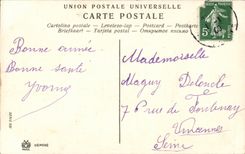 UNION POSTALE UNIVERSELLE
CARTE POSTALE
Cartolina postale - Levelezo-lap - Postcard - Postkarte
Briefkaart - Tarjeta postal - Открытое письмо
5
Bonne année
Bonne santé
Yvonne
Mademoiselle
Maguy
76 rue de Fontenay
Vincennes
Seine
DÉPOSÉ